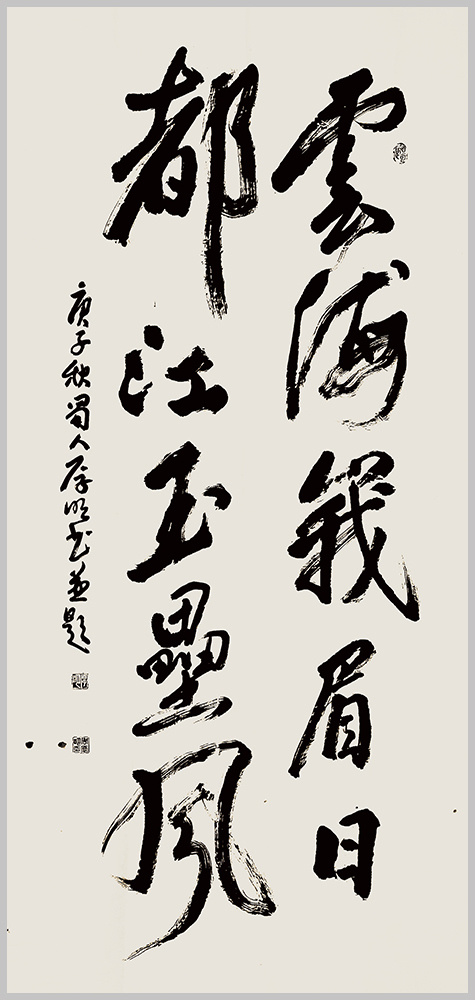 雲海峩眉日
都江玉壘風
庚子秋蜀人書並題